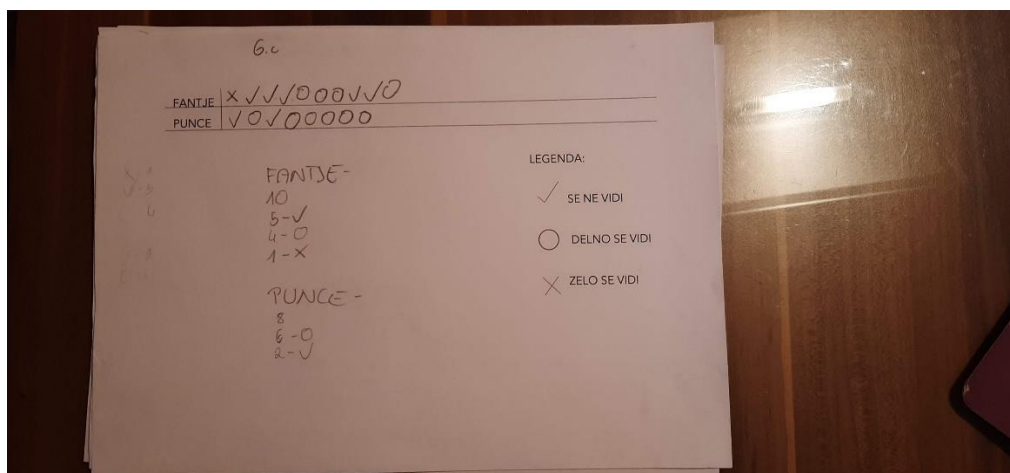 6.c
FANTJE X✓✓✓OOO✓✓O
PUNCE ✓O✓OOOOO
FANTJE-
10
5-✓
4-O
1-X
PUNCE-
8
6-O
2-✓
LEGENDA:
✓ SE NE VIDI
O DELNO SE VIDI
X ZELO SE VIDI